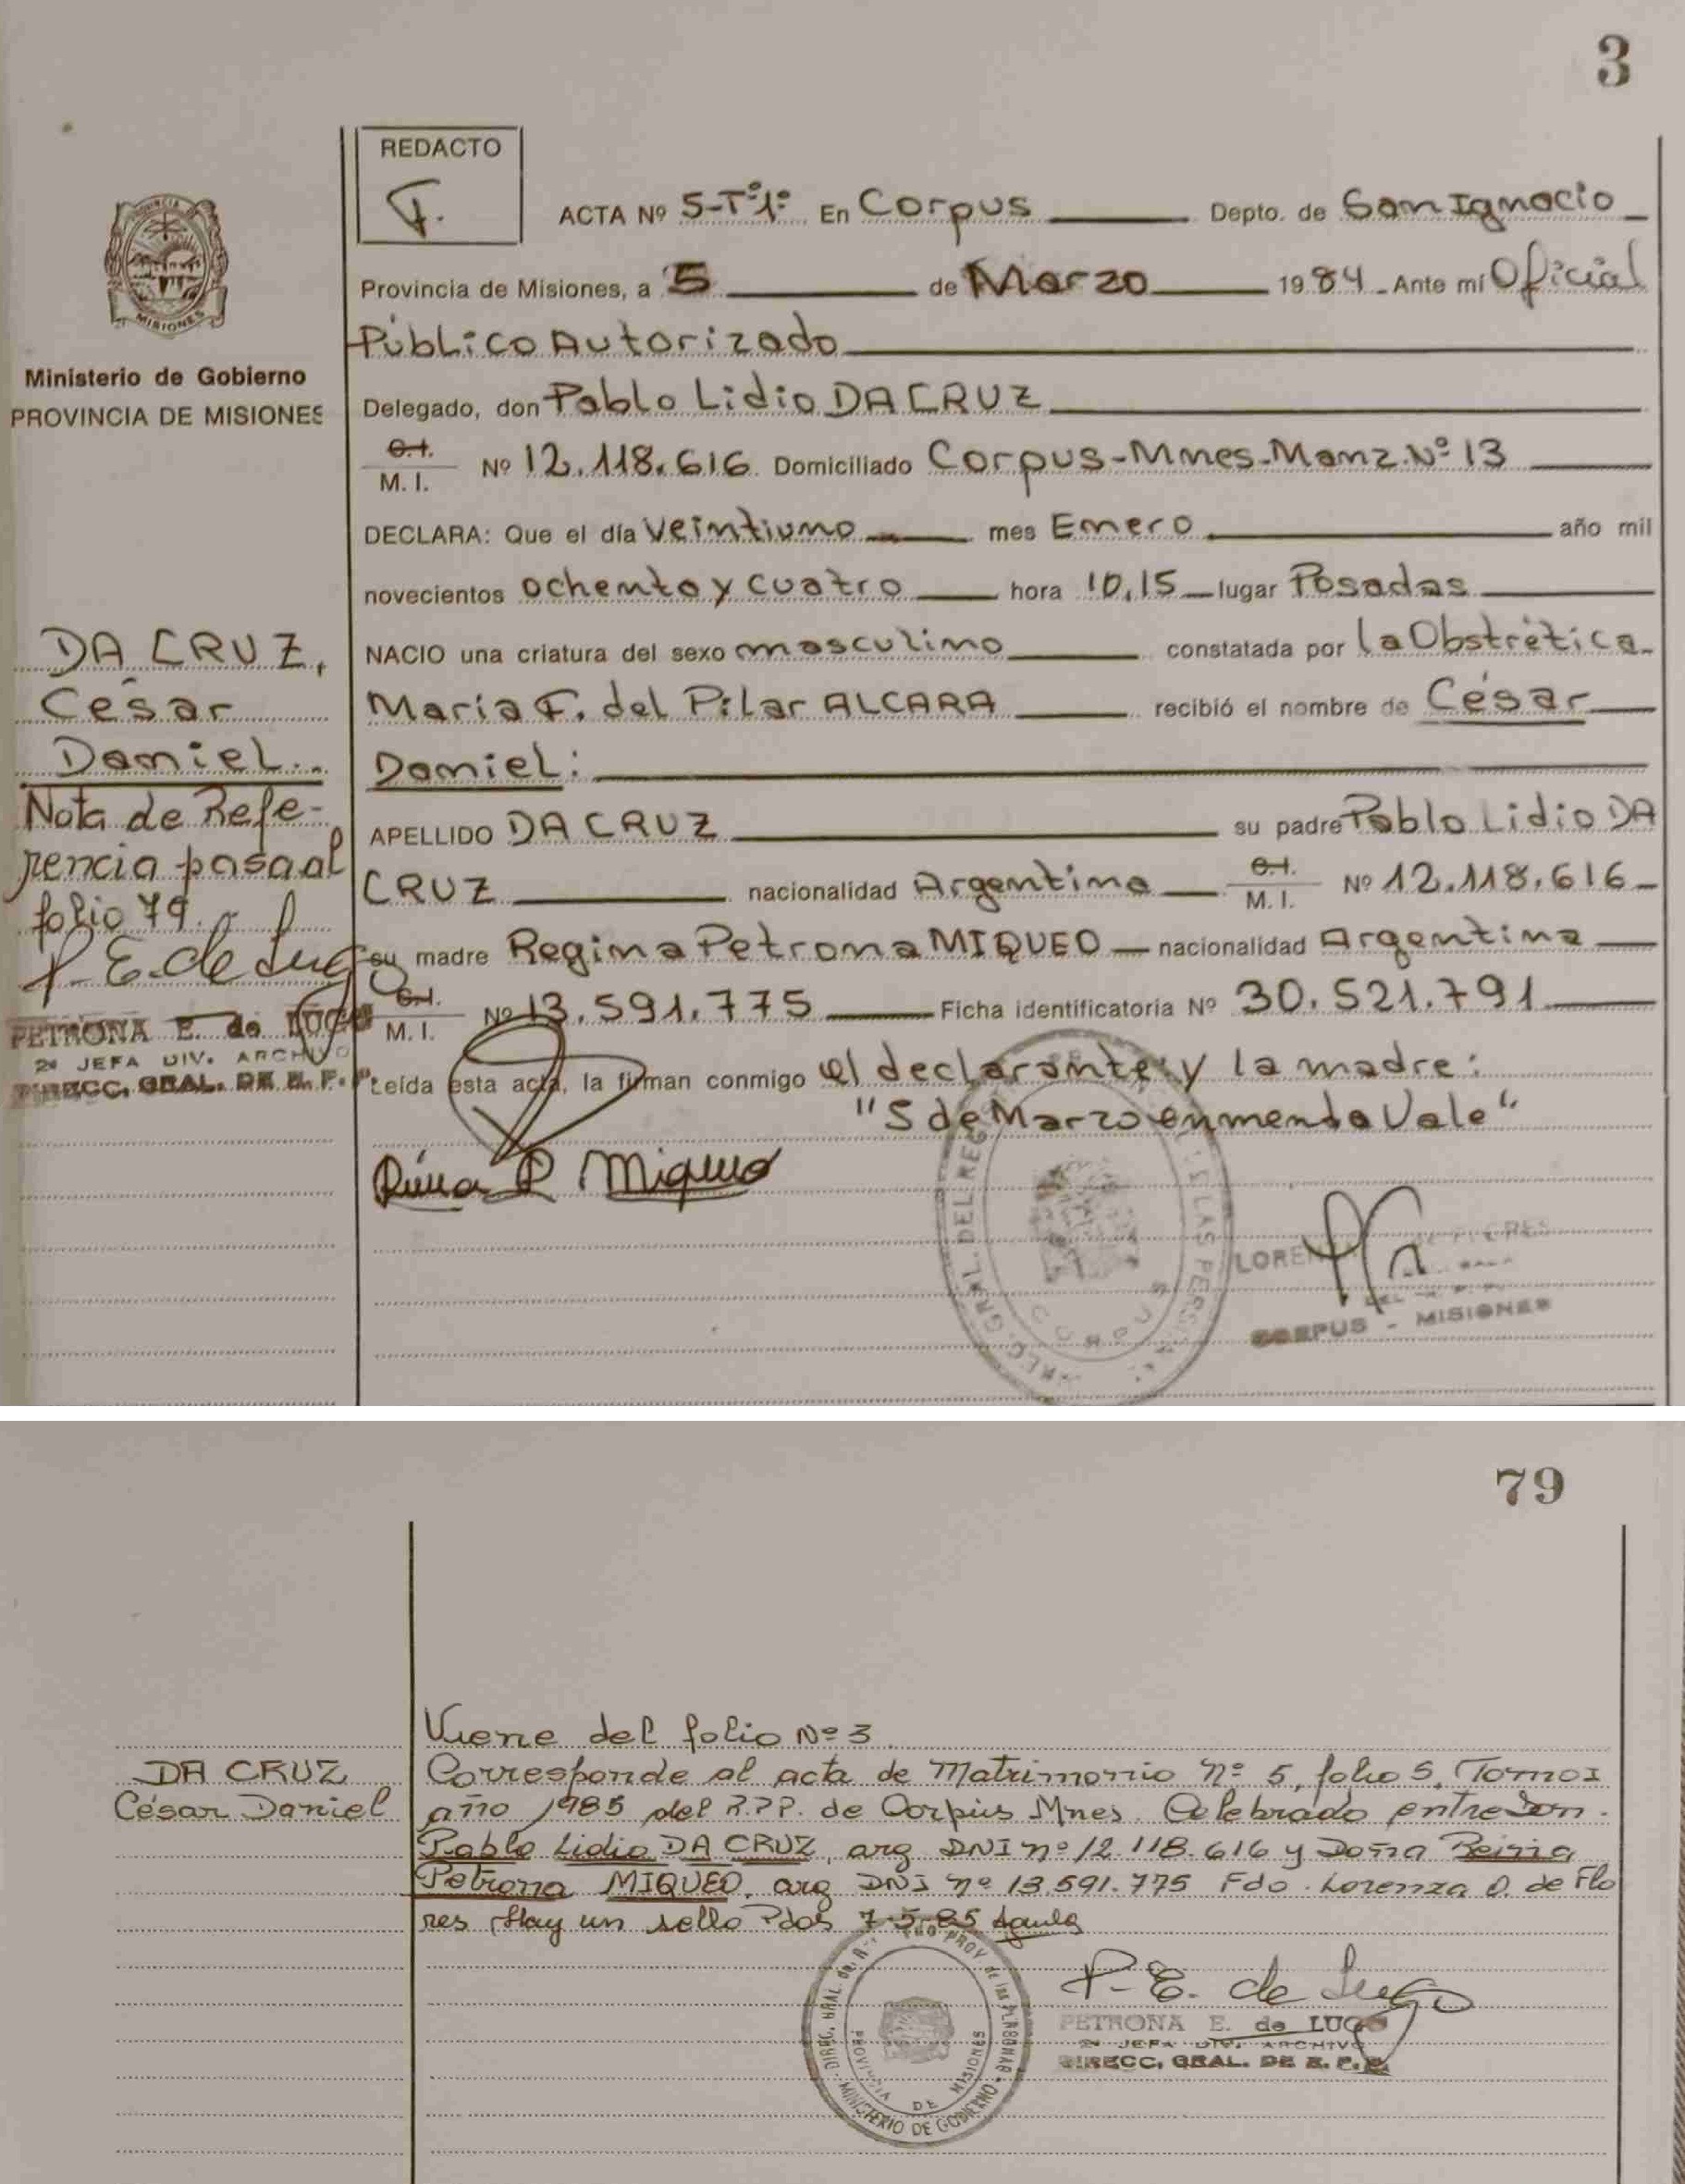 3
REDACTO
F.
ACTA Nº 5-Tº1º En Corpus Depto. de San Ignacio
Provincia de Misiones, a 5 de Marzo 1984 Ante mí Oficial
Público Autorizado
MISIONES
Ministerio de Gobierno
PROVINCIA DE MISIONES
Delegado, don Pablo Lidio DA CRUZ
C.I.
M. I. Nº 12.118.616 Domiciliado Corpus-Mnes-Manz.Nº 13
DECLARA: Que el día Veintiuno mes Enero año mil
novecientos ochenta y cuatro hora 10,15 lugar Posadas
DA CRUZ,
César
Daniel..
NACIO una criatura del sexo masculino constatada por la Obstrética
María F. del Pilar ALCARA recibió el nombre de César
Daniel:
Nota de Refe-
rencia pasa al
folio 79.
P. E. de Lugo
PETRONA E. de LUGO
2ª JEFA DIV. ARCHIVO
DIRECC. GRAL. DE R. P.
APELLIDO DA CRUZ su padre Pablo Lidio DA
CRUZ nacionalidad Argentina C.I.
M. I. Nº 12.118.616
su madre Regina Petrona MIQUEO nacionalidad Argentina
C.I.
M. I. Nº 13.591.775 Ficha identificatoria Nº 30.521.791
Leída esta acta, la firman conmigo el declarante y la madre:
"5 de Marzo enmenda Vale"
P. Miqueo
CORPUS - MISIONES
79
DA CRUZ
César Daniel
Viene del folio Nº 3
Corresponde al acta de Matrimonio Nº 5, folio 5, Tomo I
año 1985 del R.P.P. de Corpus Mnes. Celebrado entre Don
Pablo Lidio DA CRUZ, arg DNI nº 12.118.616 y Doña
Petrona MIQUEO, arg DNI nº 13.591.775 Fdo. Lorenza O. de Flo
res Hay un sello Pdas 7-5-85
P. E. de Lugo
PETRONA E. de LUGO
2ª JEFA DIV. ARCHIVO
DIRECC. GRAL. DE R. P.
PROVINCIA DE MISIONES
MINISTERIO DE GOBIERNO